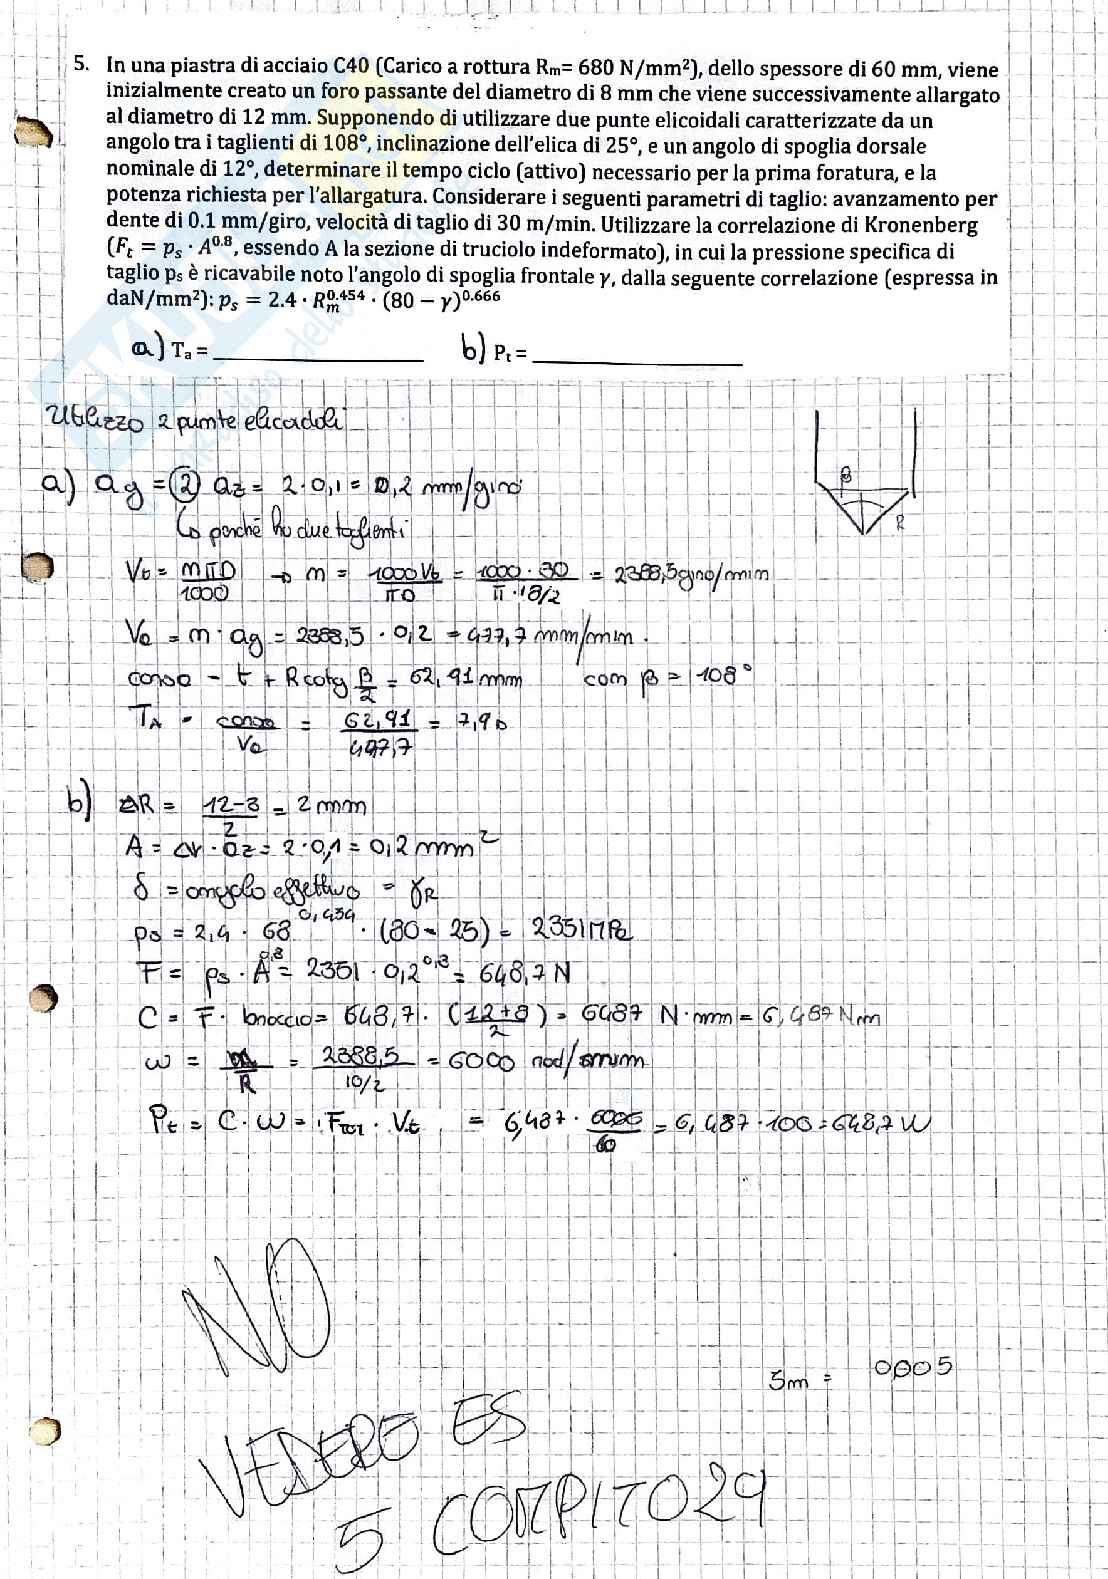 5. In una piastra di acciaio C40 (Carico a rottura Rm= 680 N/mm²), dello spessore di 60 mm, viene
inizialmente creato un foro passante del diametro di 8 mm che viene successivamente allargato
al diametro di 12 mm. Supponendo di utilizzare due punte elicoidali caratterizzate da un
angolo tra i taglienti di 108°, inclinazione dell'elica di 25°, e un angolo di spoglia dorsale
nominale di 12°, determinare il tempo ciclo (attivo) necessario per la prima foratura, e la
potenza richiesta per l'allargatura. Considerare i seguenti parametri di taglio: avanzamento per
dente di 0.1 mm/giro, velocità di taglio di 30 m/min. Utilizzare la correlazione di Kronenberg
(Ft = ps · A^0.8, essendo A la sezione di truciolo indeformato), in cui la pressione specifica di
taglio ps è ricavabile noto l'angolo di spoglia frontale γ, dalla seguente correlazione (espressa in
daN/mm²): ps = 2.4 · Rm^0.454 · (80 − γ)^0.666
a) Ta = ____________ b) Pt = ____________
Utilizzo 2 punte elicoidali
a) ag = 2 az = 2·0,1 = 0,2 mm/giro
↳ perché ho due taglienti
β
R
Vt = nπD/1000 → n = 1000Vt/πD = 1000·30/π·8/2 = 2388,5 giro/min
Va = n·ag = 2388,5 · 0,2 = 477,7 mm/min.
corsa = t + R cotg β/2 = 62,91 mm com β = 108°
TA = corsa/Va = 62,91/477,7 = 7,9 s
b) ΔR = 12-8/2 = 2 mm
A = Δr · az = 2·0,1 = 0,2 mm²
δ = angolo effettivo = γR
ps = 2,4 · 68^0,454 · (80 - 25) = 2351 MPa
F = ps · A^0,8 = 2351 · 0,2^0,8 = 648,7 N
C = F · braccio = 648,7 · (12+8/2) = 6487 N·mm = 6,487 Nm
ω = Vt/R = 2388,5/10/2 = 6000 rad/min
Pt = C·ω = Ftot · Vt = 6,487 · 6000/60 = 6,487·100 = 648,7 W
NO
5m = 0005
VEDERE ES
5 COMPITO 29